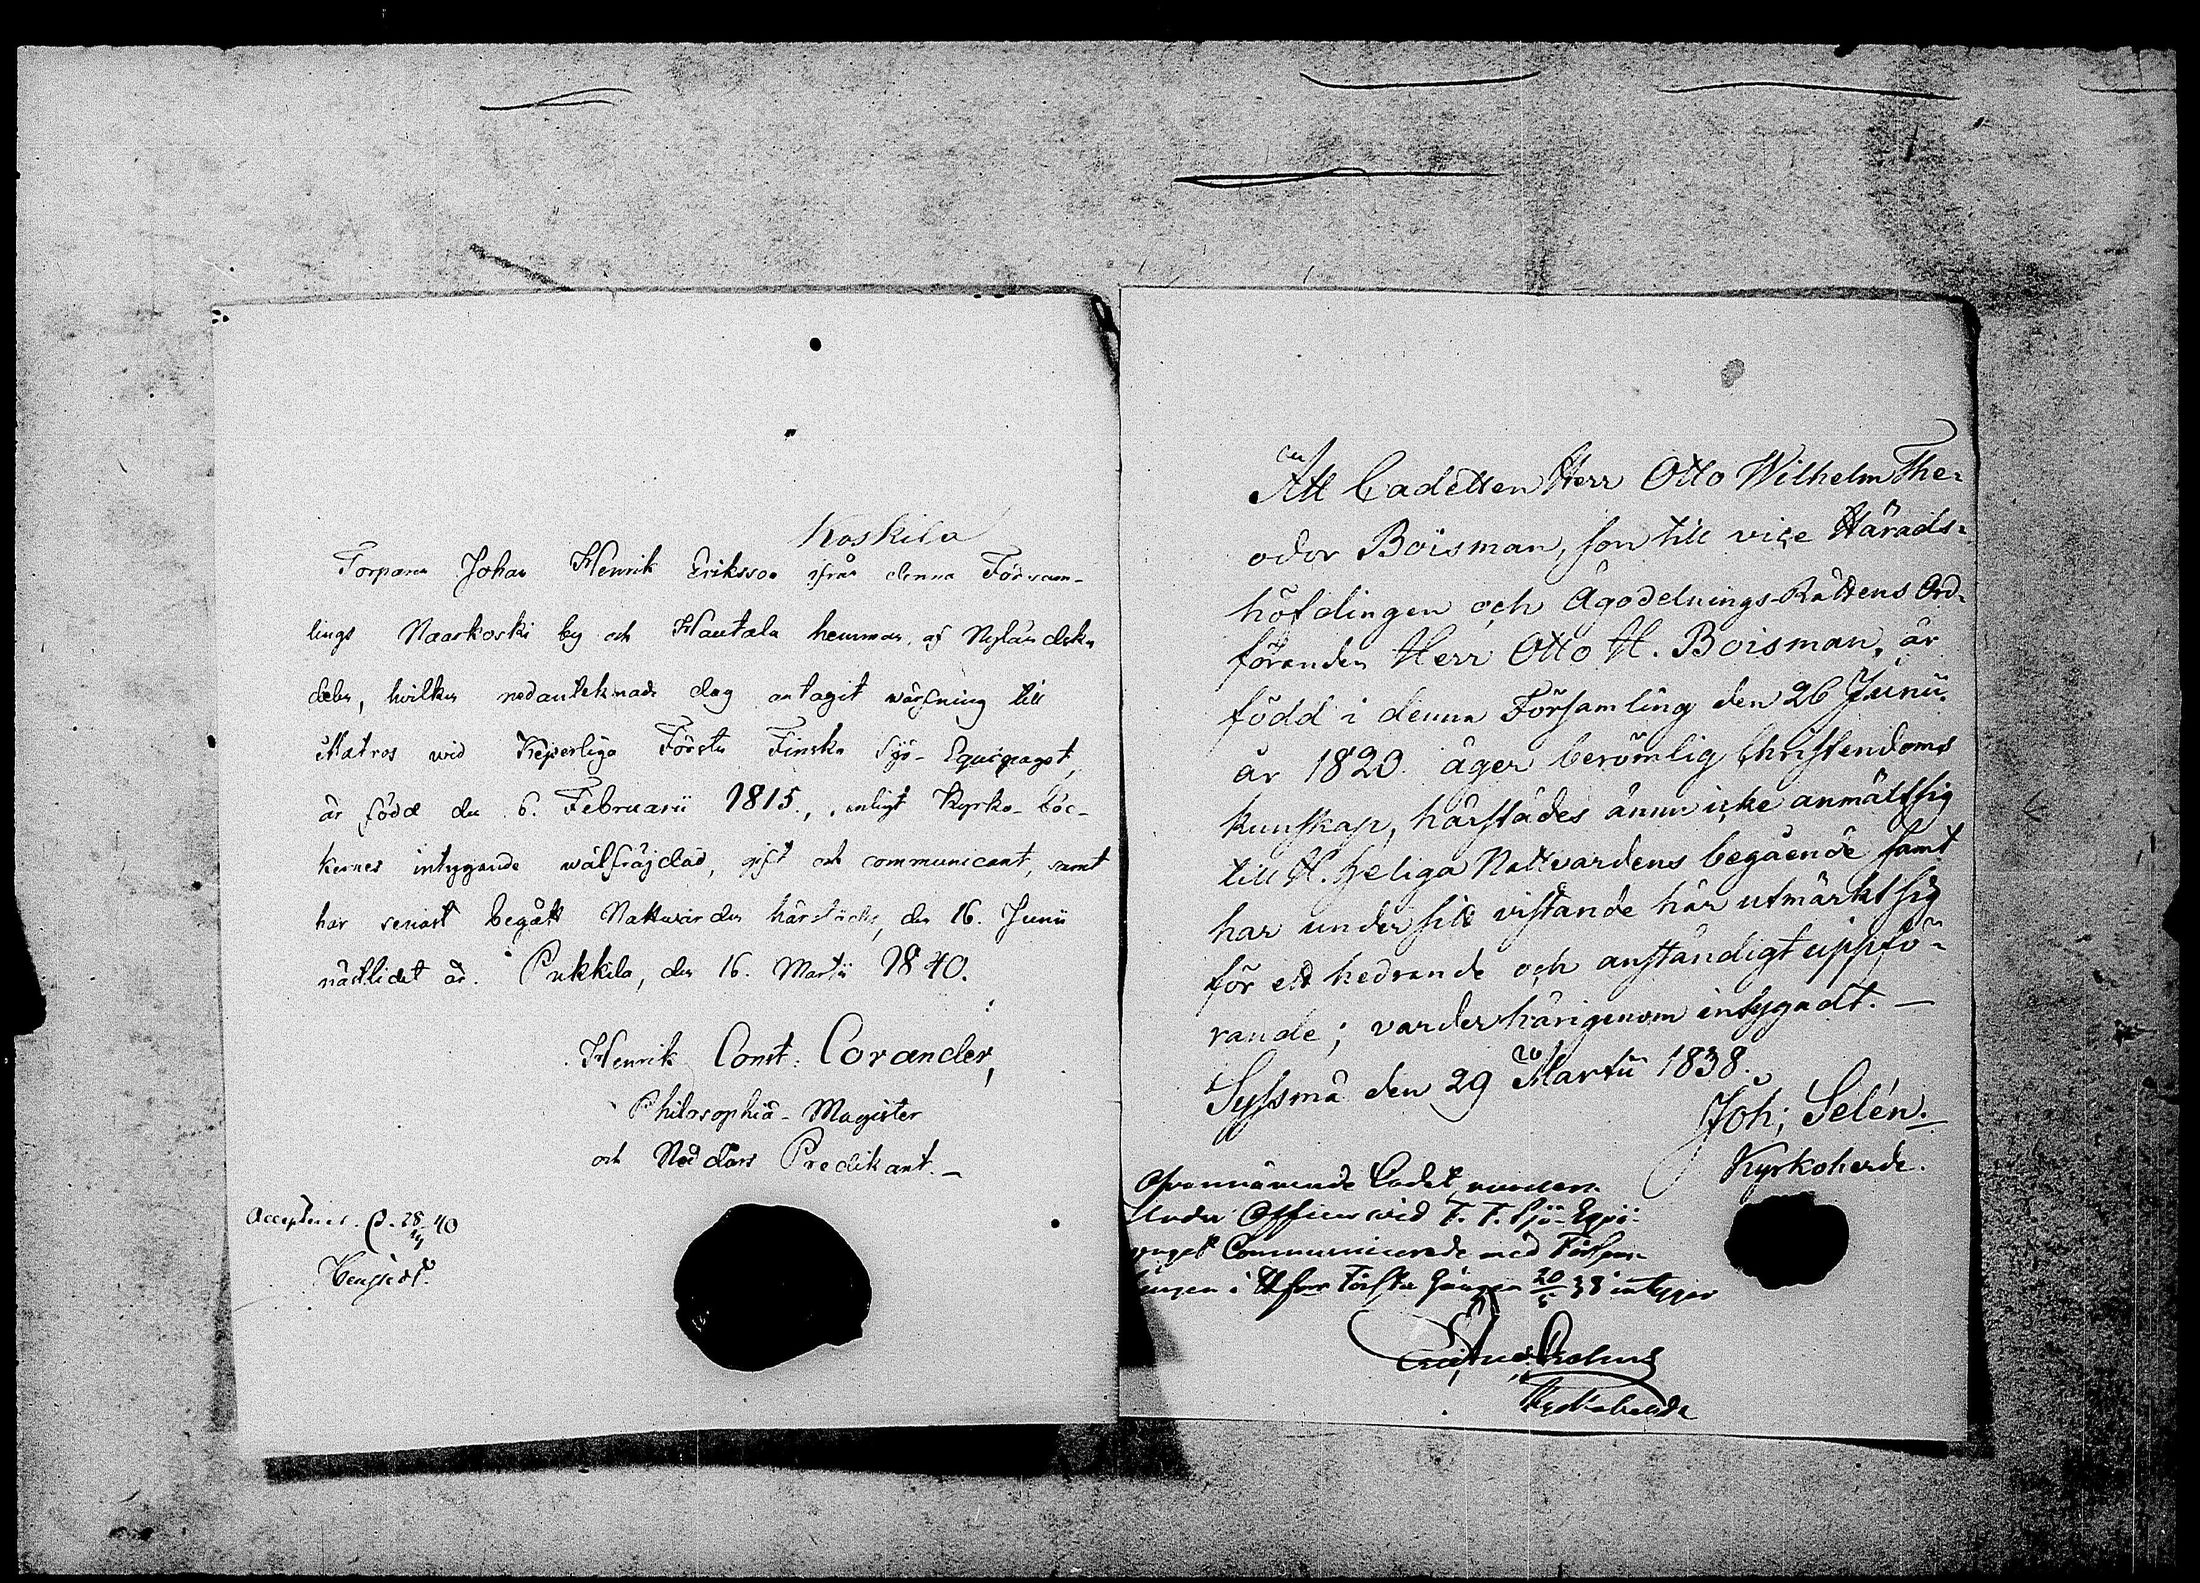 Koskila
Torparen Johan Henrik Eriksson ifrån denna Försam-
lings Naarkoski by och Hautala hemman, af Nyländska
delen, hvilken nedantecknade dag antagit värfning till
Matros wid Kejserliga Första Finska Sjö-Equipaget,
är född den 6. Februarii 1815., enligt Kyrko-böc-
kernes intygande wälfräjdad, gift och communicant, samt
har senast begått Nattvarden härstädes, den 16. Junii
nästlidet år. Pukkila, den 16. Martii 1840.
Henrik Const. Corander,
Philosophiä-Magister
och Nådårs Predikant.
28 40
Att Cadetten Herr Otto Wilhelm The-
odor Boisman, son till vice Härads-
höfdingen och Ägodelnings-Rättens Ord-
föranden Herr Otto H. Boisman, är
född i denna Församling den 26 Junii
år 1820. äger berömlig Christendoms
kunskap, härstädes ännu icke anmält sig
till H. heliga Nattvardens begående samt
har under sitt vistande här utmärkt sig
för ett hedrande och anständigt uppfö-
rande; varder härigenom intygadt. —
Syssmä den 29 Martii 1838.
Joh; Selén.
Kyrkoherde.
Ofvannämnde Cadet,
Under Officer wid F. F. Sjö-Eqvi-
paget Communicerade med Försam-
lingen i första gången 20/5 38 intygar
Kyrkoherde